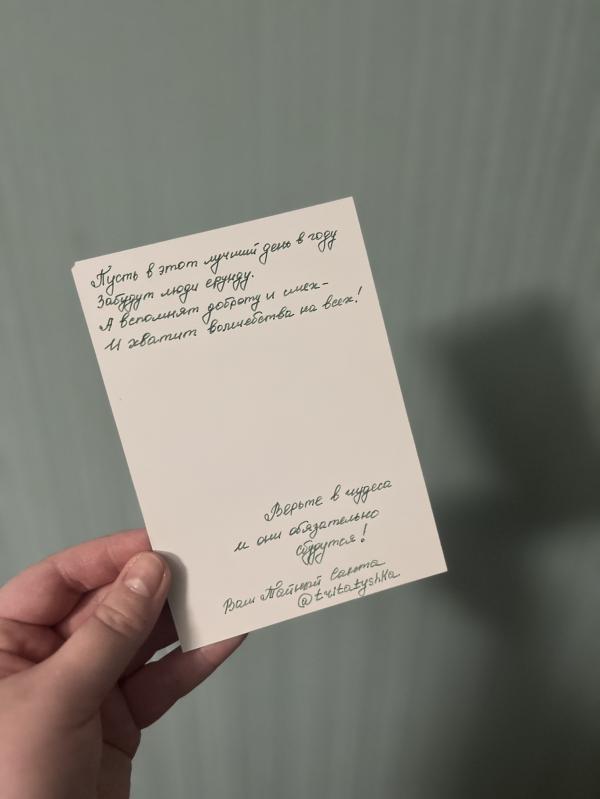 Пусть в этот лучший день в году
Забудут люди ерунду.
А вспомнят доброту и смех-
И хватит волшебства на всех!
Верьте в чудеса
и они обязательно
сбудутся!
Ваш Тайный Санта
@tvitatyshka